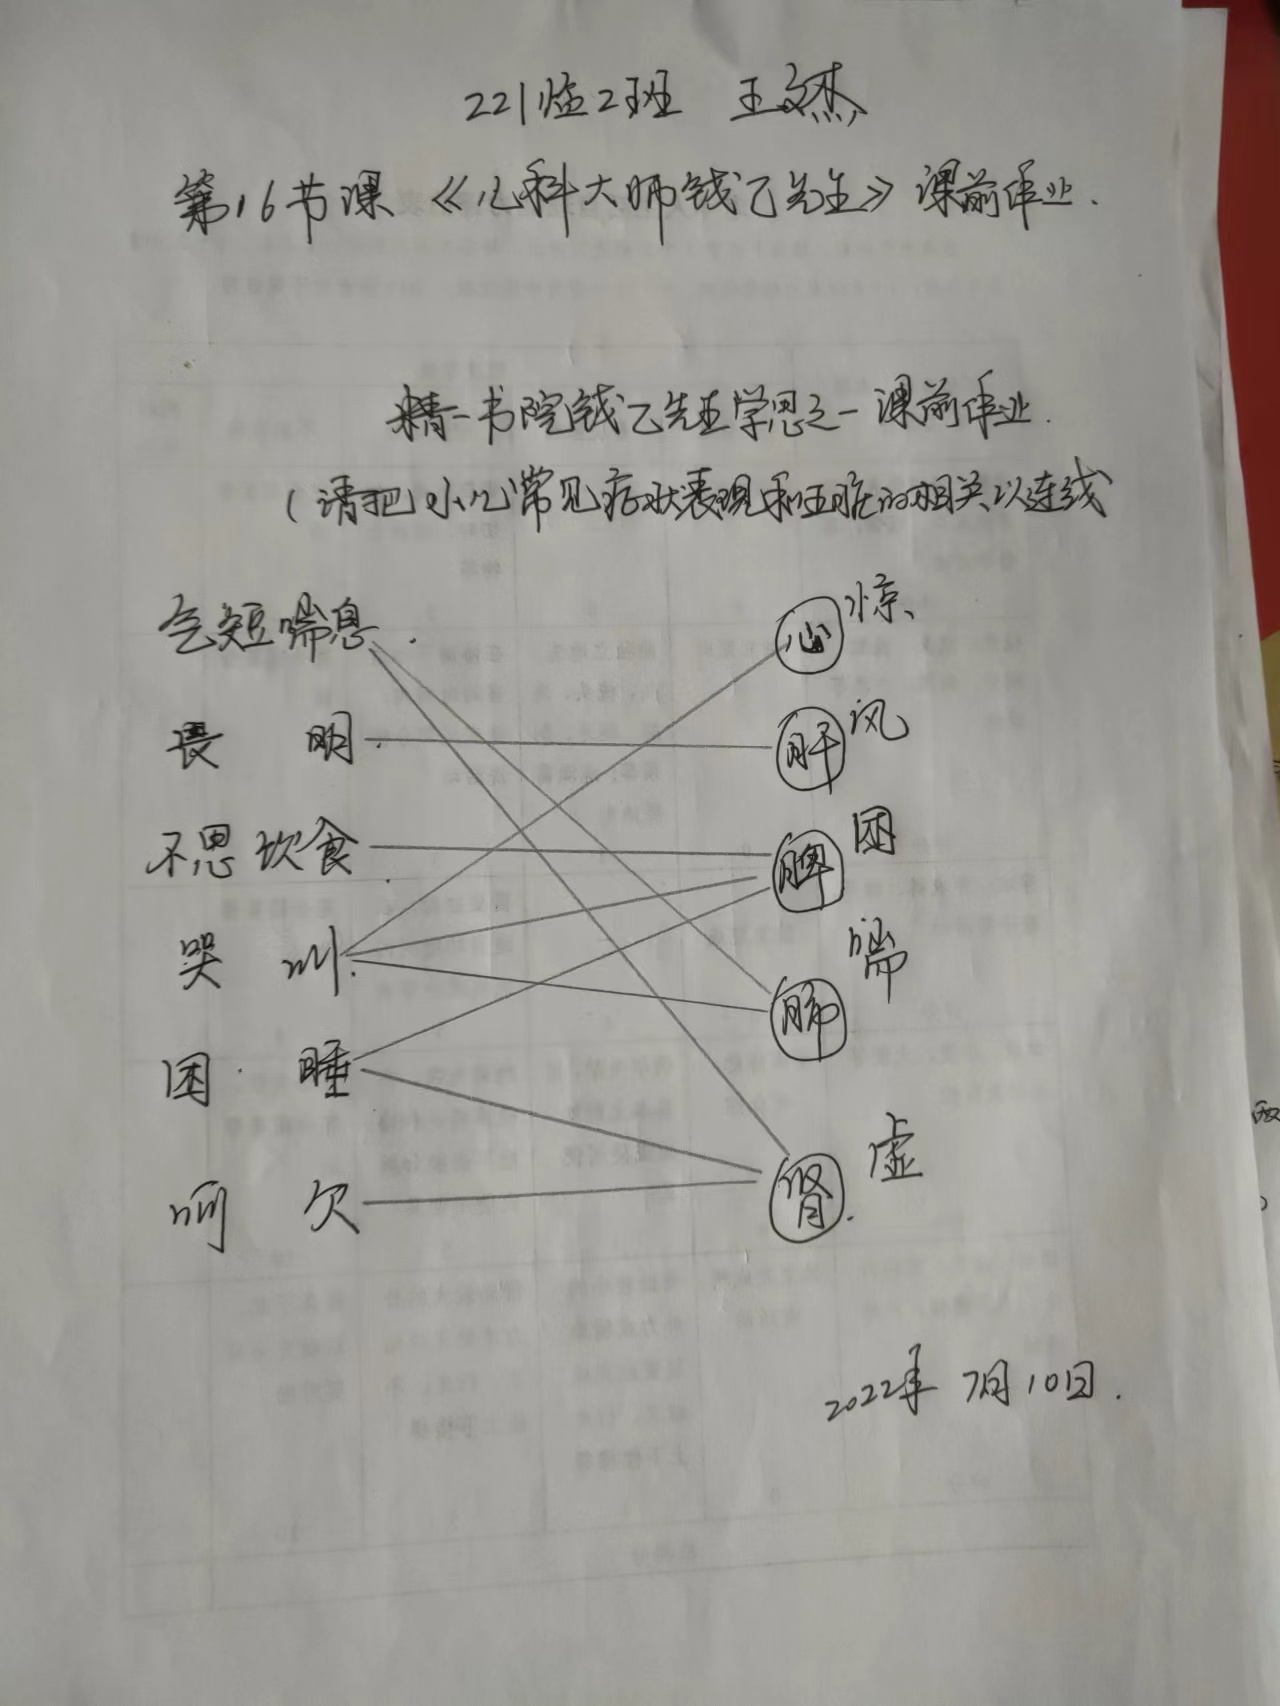 221临2班 王文杰
第16节课《儿科大师钱乙先生》课前作业.
精一书院钱乙先生学思之一课前作业.
(请把小儿常见症状表现和五脏的相关以连线
气短喘息 心 惊、
畏明 肝 风
不思饮食 脾 困
哭叫 肺 喘
困睡
呵欠 肾 虚
2022年7月10日.